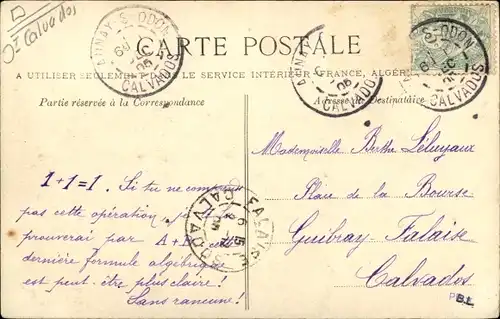 Dt Calvados
CARTE POSTALE
A UTILISER SEULEMENT DANS LE SERVICE INTÉRIEUR (FRANCE, ALGÉR
Partie réservée à la Correspondance
Adresse du Destinataire
AUNAY-S-ODON
CALVADOS
AUNAY
CALVADOS
S-ODON
CALVADOS
1+1=1. Si tu ne comp
pas cette opération, je
prouverai par A+B cette
dernière formule algébrique
est peut-être plus claire!
Sans rancune!
FALAISE
CALVADOS
Mademoiselle Berthe Leluyaux
Place de la Bourse
Guibray-Falaise
Calvados
B.L.